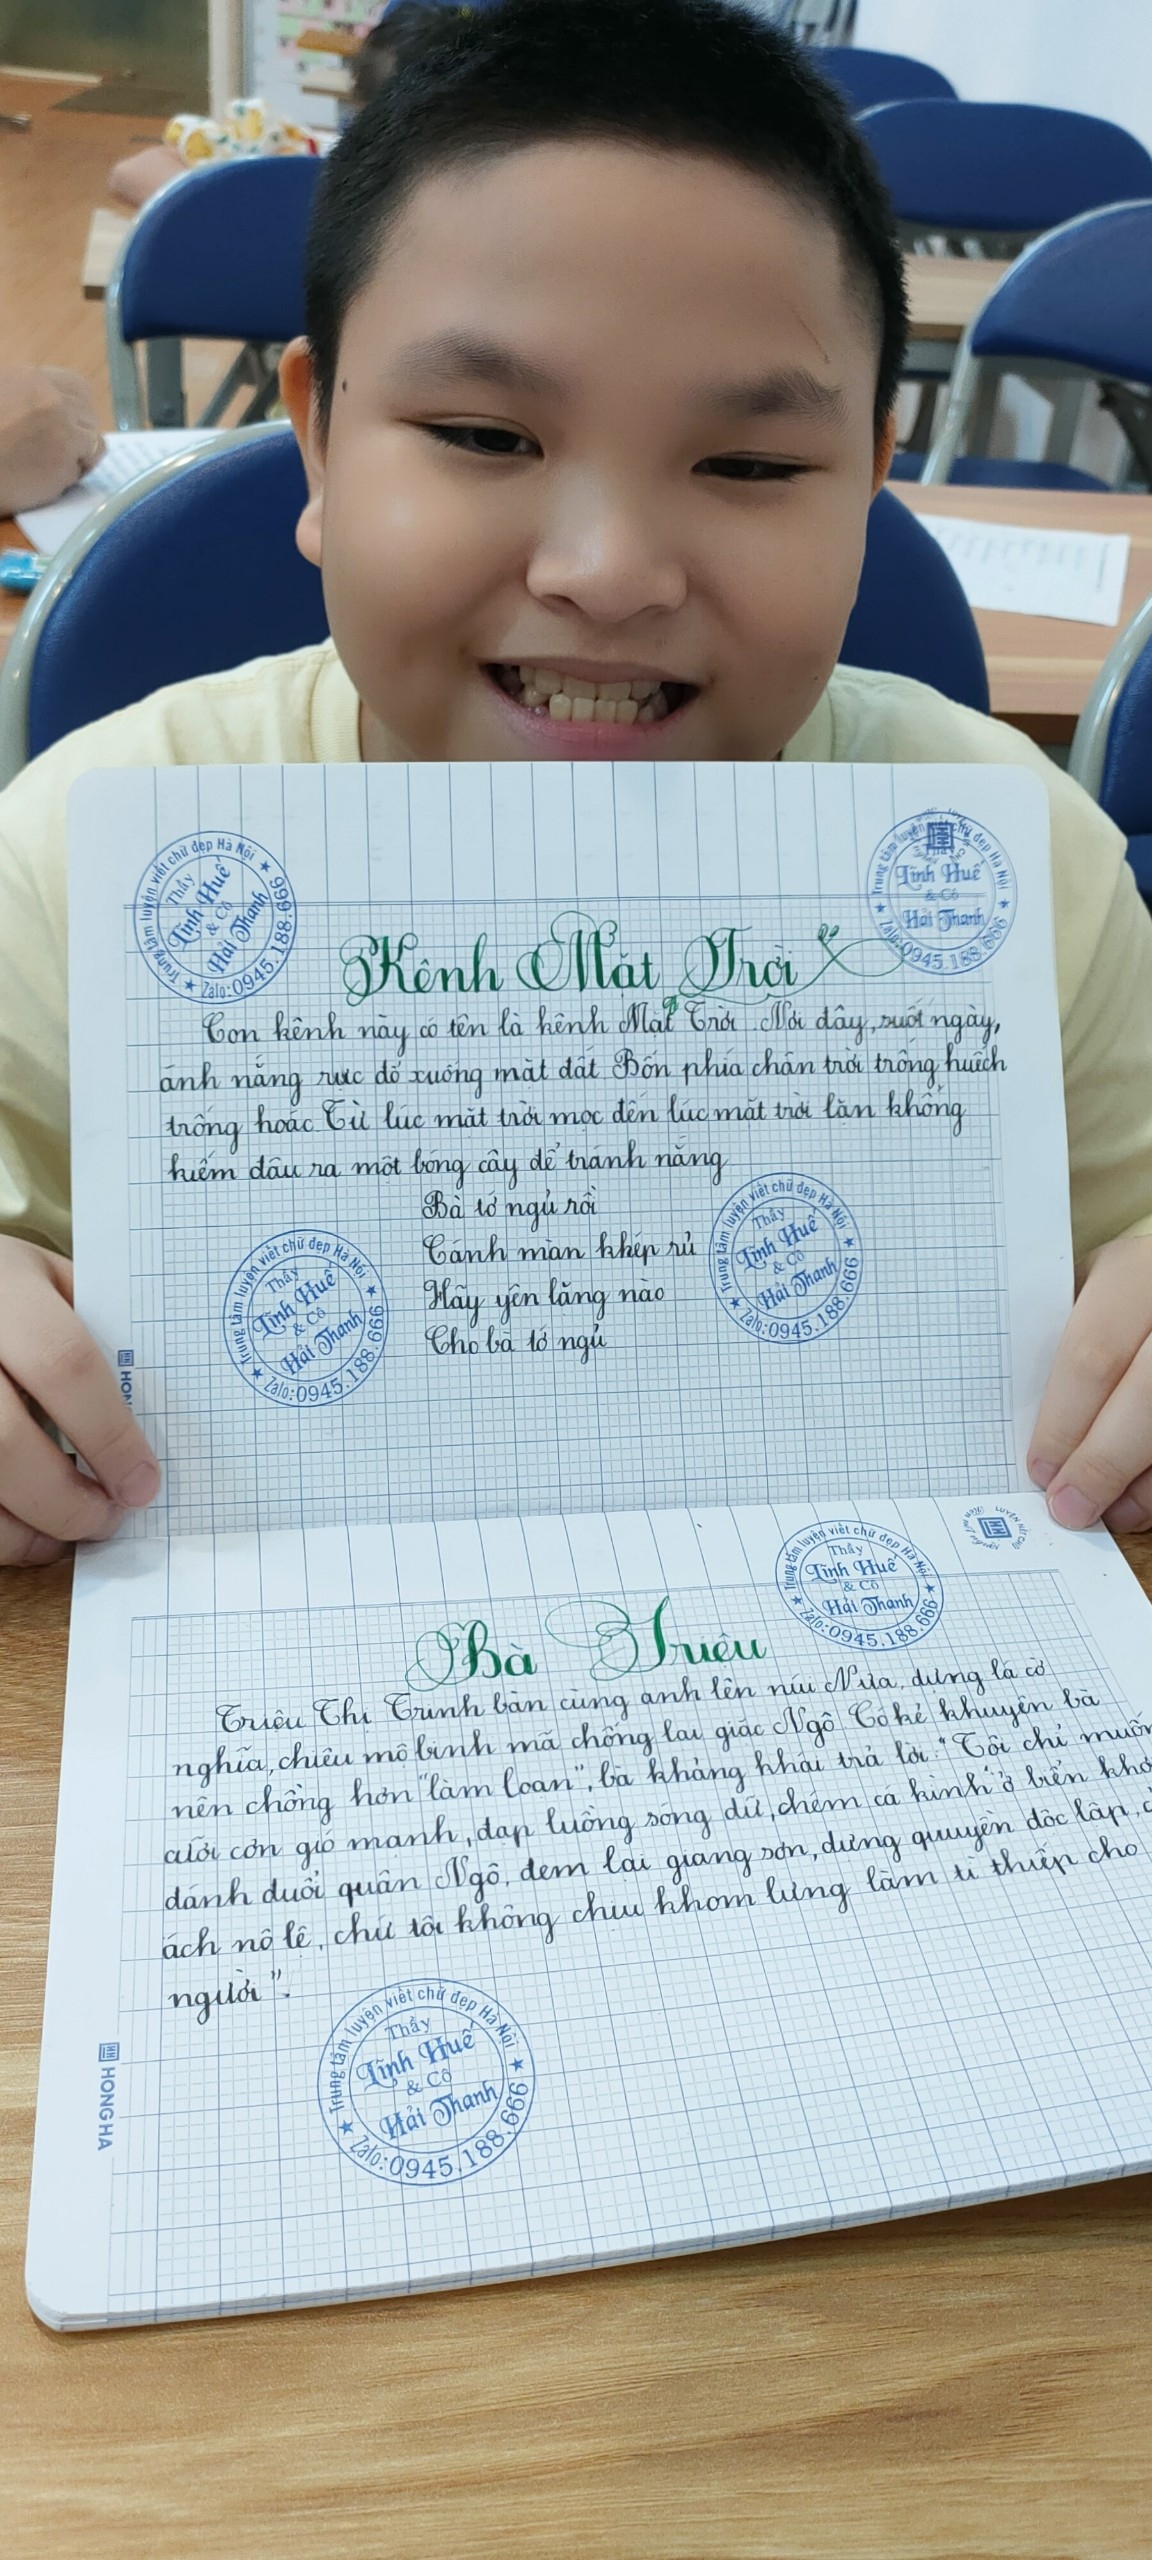 Trung tâm luyện viết chữ đẹp Hà Nội
Thầy
Lĩnh Huế
& Cô
Hải Thanh
Zalo:0945.188.666
Trung tâm luyện viết chữ đẹp Hà Nội
Thầy
Lĩnh Huế
& Cô
Hải Thanh
Zalo:0945.188.666
Kênh Mặt Trời
Con kênh này có tên là kênh Mặt Trời. Nơi đây, suốt ngày,
ánh nắng rực đỏ xuống mặt đất Bốn phía chân trời trống huếch
trống hoác Từ lúc mặt trời mọc đến lúc mặt trời lặn không
kiếm đâu ra một bóng cây để tránh nắng
Bà tớ ngủ rồi
Cánh màn khép rủ
Hãy yên lặng nào
Cho bà tớ ngủ
Trung tâm luyện viết chữ đẹp Hà Nội
Thầy
Lĩnh Huế
& Cô
Hải Thanh
Zalo:0945.188.666
Trung tâm luyện viết chữ đẹp Hà Nội
Thầy
Lĩnh Huế
& Cô
Hải Thanh
Zalo:0945.188.666
HON
Trung tâm luyện viết chữ đẹp Hà Nội
Thầy
Lĩnh Huế
& Cô
Hải Thanh
Zalo:0945.188.666
LUYỆN NÉT CHỮ
Bà Triệu
Triệu Thị Trinh bàn cùng anh lên núi Nưa, dựng lá cờ
nghĩa, chiêu mộ binh mã chống lại giặc Ngô Có kẻ khuyên bà
nên chồng hơn "làm loạn", bà khảng khái trả lời: "Tôi chỉ muốn
cưỡi cơn gió mạnh, đạp luồng sóng dữ, chém cá kình ở biển khơ
đánh đuổi quân Ngô, đem lại giang sơn, dựng quuyền độc lập, c
ách nô lệ, chứ tôi không chịu khom lưng làm tì thiếp cho
người".
Trung tâm luyện viết chữ đẹp Hà Nội
Thầy
Lĩnh Huế
& Cô
Hải Thanh
Zalo:0945.188.666
HONG HA